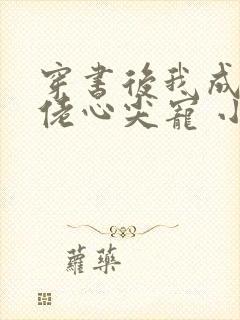 穿書後我成
佬心尖寵 小
蘿藥